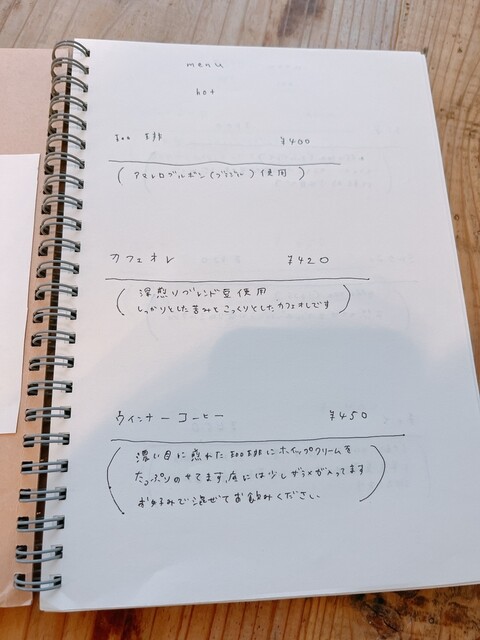 menu
hot
珈琲 ¥400
(アマレロブルボン(ブラジル)使用)
カフェオレ ¥420
(深煎りブレンド豆使用
しっかりとした苦みとこっくりとしたカフェオレです)
ウィンナーコーヒー ¥450
(濃い目に煎れた珈琲にホイップクリームを
たっぷりのせてます。底には少しザラメが入ってます
お好みで混ぜてお飲みください)